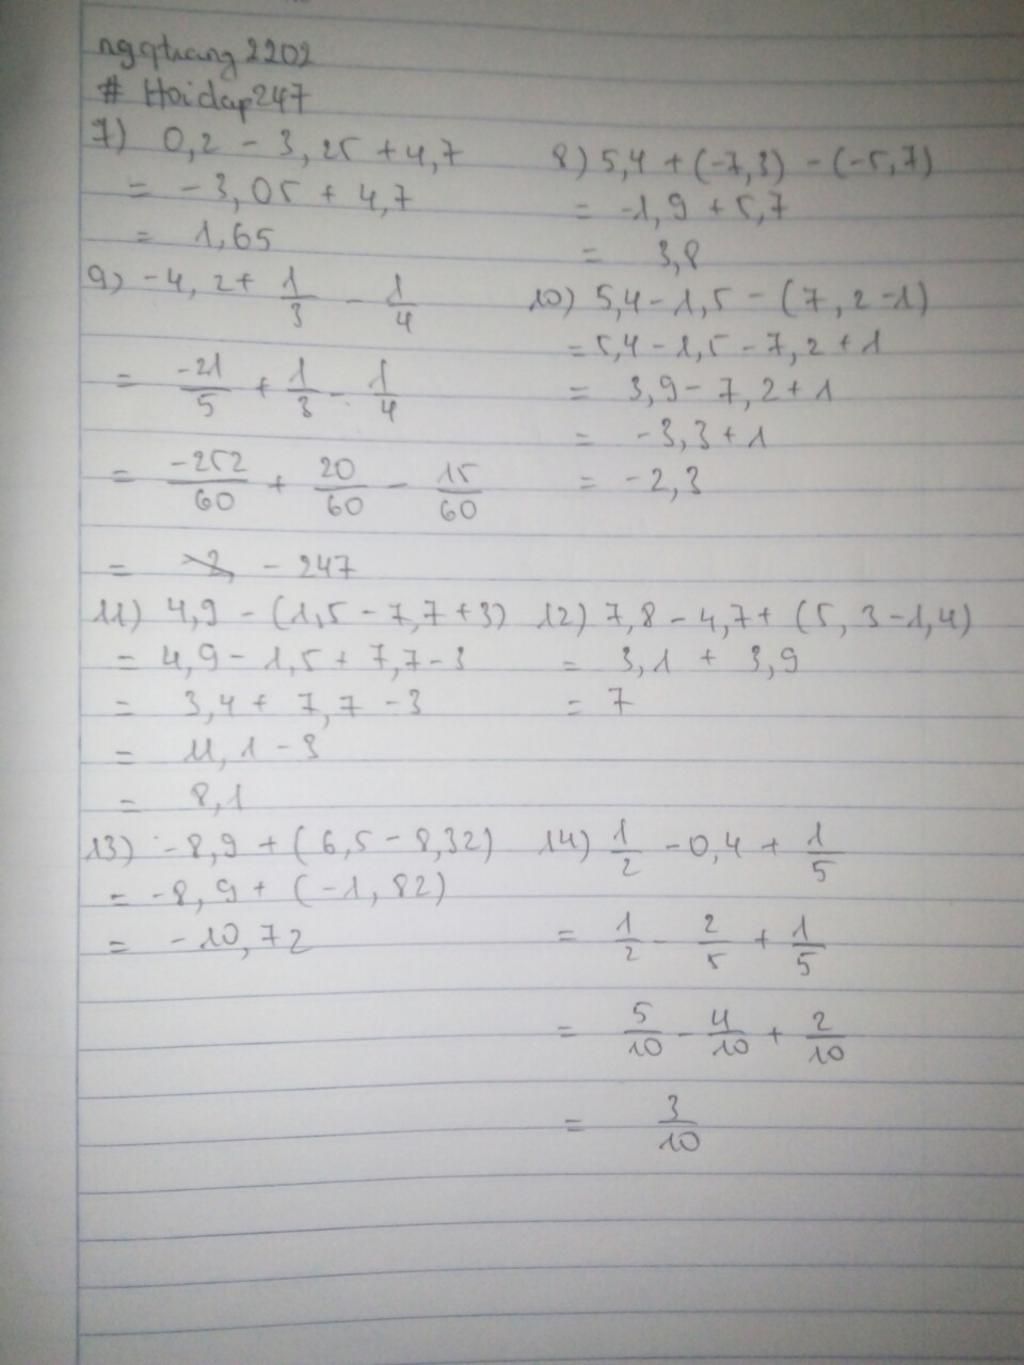 ngqtrang2202
# Hoidap247
7) 0,2 - 3,25 + 4,7
= -3,05 + 4,7
= 1,65
8) 5,4 + (-7,3) - (-5,7)
= -1,9 + 5,7
= 3,8
9) -4,2 + 1/3 - 1/4
= -21/5 + 1/3 - 1/4
= -252/60 + 20/60 - 15/60
= -247
10) 5,4 - 1,5 - (7,2 - 1)
= 5,4 - 1,5 - 7,2 + 1
= 3,9 - 7,2 + 1
= -3,3 + 1
= -2,3
11) 4,9 - (1,5 - 7,7 + 3)
= 4,9 - 1,5 + 7,7 - 3
= 3,4 + 7,7 - 3
= 11,1 - 3
= 8,1
12) 7,8 - 4,7 + (5,3 - 1,4)
= 3,1 + 3,9
= 7
13) -8,9 + (6,5 - 8,32)
= -8,9 + (-1,82)
= -10,72
14) 1/2 - 0,4 + 1/5
= 1/2 - 2/5 + 1/5
= 5/10 - 4/10 + 2/10
= 3/10